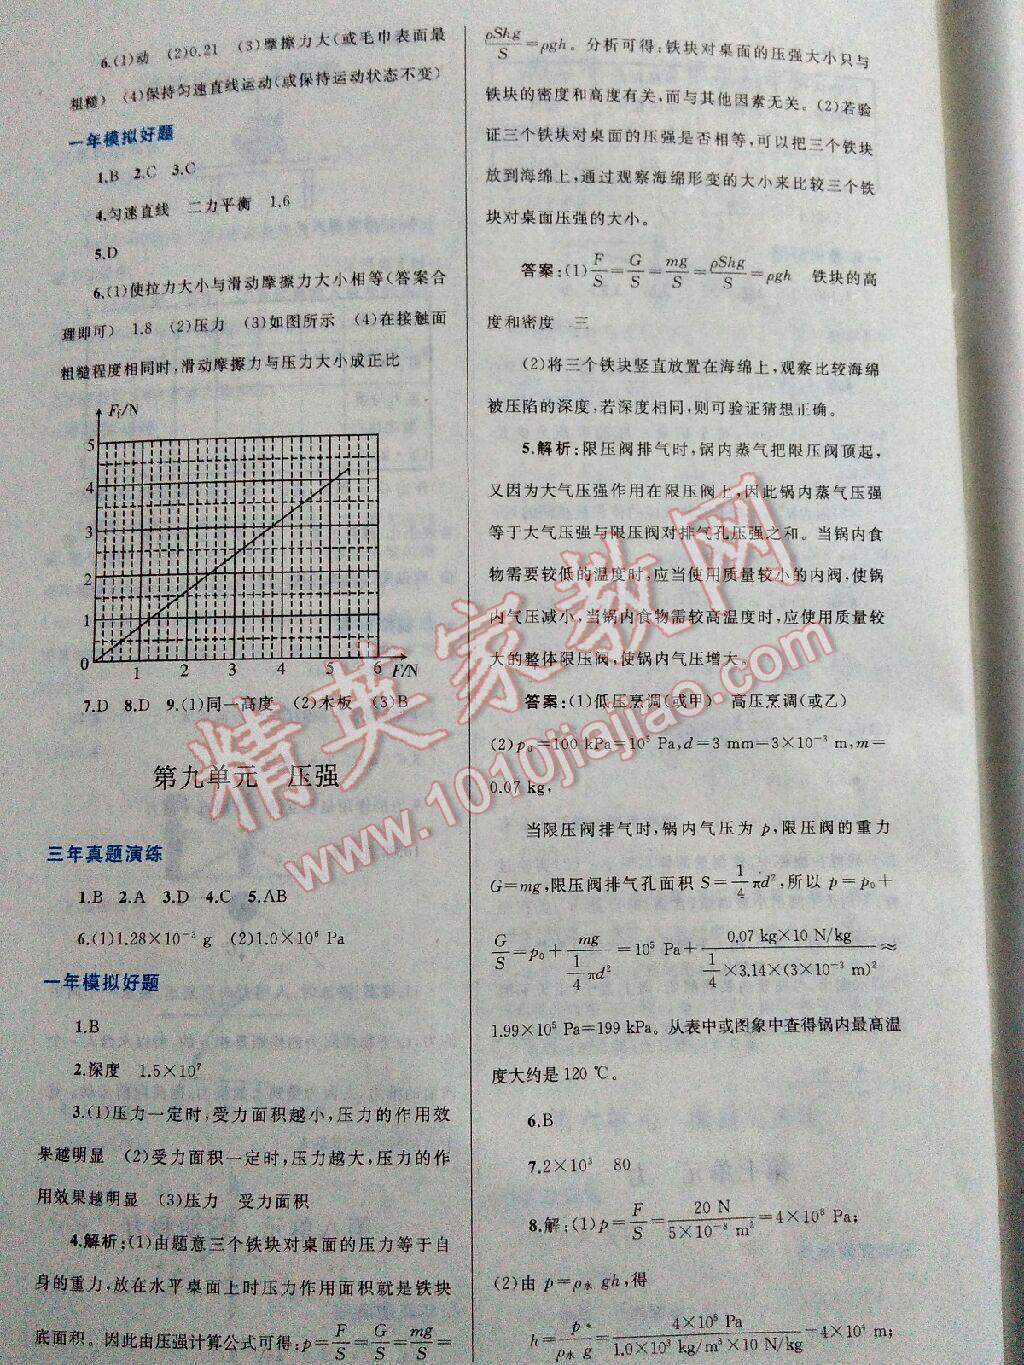 6.(1)动 (2)0.21 (3)摩擦力大(或毛巾表面最
粗糙) (4)保持匀速直线运动(或保持运动状态不变)
一年模拟好题
1.B 2.C 3.C
4.匀速直线 二力平衡 1.6
5.D
6.(1)使拉力大小与滑动摩擦力大小相等(答案合
理即可) 1.8 (2)压力 (3)如图所示 (4)在接触面
粗糙程度相同时,滑动摩擦力与压力大小成正比
Ff/N
5
4
3
2
1
0 1 2 3 4 5 6 F/N
7.D 8.D 9.(1)同一高度 (2)木板 (3)B
第九单元 压强
三年真题演练
1.B 2.A 3.D 4.C 5.AB
6.(1)1.28×10⁻² g (2)1.0×10⁶ Pa
一年模拟好题
1.B
2.深度 1.5×10⁷
3.(1)压力一定时,受力面积越小,压力的作用效
果越明显 (2)受力面积一定时,压力越大,压力的作
用效果越明显 (3)压力 受力面积
4.解析:(1)由题意三个铁块对桌面的压力等于自
身的重力,放在水平桌面上时压力作用面积就是铁块
底面积。因此由压强计算公式可得:p=F/S=G/S=mg/S=
ρShg/S=ρgh。分析可得:铁块对桌面的压强大小只与
铁块的密度和高度有关,而与其他因素无关。(2)若验
证三个铁块对桌面的压强是否相等,可以把三个铁块
放到海绵上,通过观察海绵形变的大小来比较三个铁
块对桌面压强的大小。
答案:(1)F/S=G/S=mg/S=ρShg/S=ρgh 铁块的高
度和密度 三
(2)将三个铁块竖直放置在海绵上,观察比较海绵
被压陷的深度,若深度相同,则可验证猜想正确。
5.解析:限压阀排气时,锅内蒸气把限压阀顶起,
又因为大气压强作用在限压阀上,因此锅内蒸气压强
等于大气压强与限压阀对排气孔压强之和。当锅内食
物需要较低的温度时,应当使用质量较小的内阀,使锅
内气压减小,当锅内食物需较高温度时,应使用质量较
大的整体限压阀,使锅内气压增大。
答案:(1)低压烹调(或甲) 高压烹调(或乙)
(2)p₀=100 kPa=10⁵ Pa,d=3 mm=3×10⁻³ m,m=
0.07 kg,
当限压阀排气时,锅内气压为 p,限压阀的重力
G=mg,限压阀排气孔面积 S=1/4πd²,所以 p=p₀+
G/S=p₀+mg/(1/4πd²)=10⁵ Pa+0.07 kg×10 N/kg/(1/4×3.14×(3×10⁻³ m)²)≈
1.99×10⁵ Pa=199 kPa。从表中或图象中查得锅内最高温
度大约是 120 ℃。
6.B
7.2×10³ 80
8.解:(1)p=F/S=20 N/(5×10⁻⁸ m²)=4×10⁸ Pa;
(2)由 p=ρ水 gh,得
h=p/(ρ水 g)=4×10⁸ Pa/(1.0×10³ kg/m³×10 N/kg)=4×10⁴ m;
精英家教网
www.1010jiajiao.com